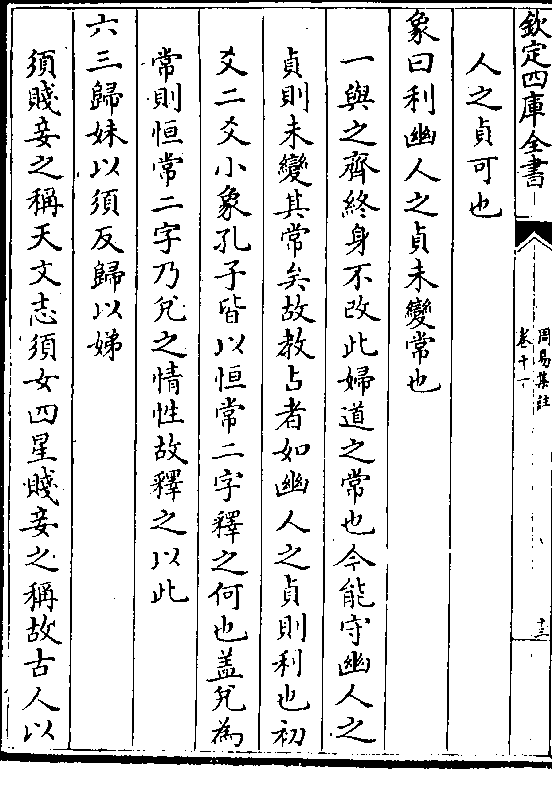 欽定四庫全書
周易集註
卷十一
十三
人之貞可也
象曰利幽人之貞未變常也
一與之齊終身不改此婦道之常也今能守幽人之
貞則未變其常矣故教占者如幽人之貞則利也初
爻二爻小象孔子皆以恒常二字釋之何也蓋兌為
常則恒常二字乃兌之情性故釋之以此
六三歸妹以須反歸以娣
須賤妾之稱天文志須女四星賤妾之稱故古人以